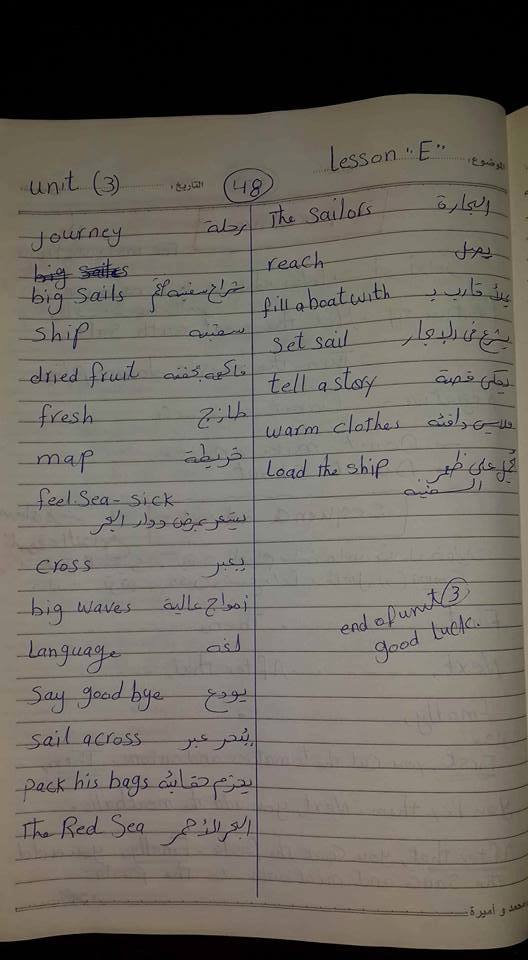 الموضوع: Lesson "E"
unit (3) التاريخ: 48
Journey رحلة
big sails
big Sails شراع سفينة
Ship سفينه
dried fruit فاكهه مجففه
fresh طازج
map خريطة
feel Sea-Sick
يشعر بمرض دوار البحر
cross يعبر
big waves أمواج عالية
Language لغه
Say good bye يودع
sail across يبحر عبر
pack his bags يحزم حقائبه
The Red Sea البحر الأحمر
The Sailors البحارة
reach يصل
fill a boat with يملأ قارب بـ
Set sail يشرع فى الإبحار
tell a story يحكى قصة
warm clothes ملابس دافئه
Load the ship يحمل على ظهر
السفينه
end of unit 3
good luck.
محمد و أميرة